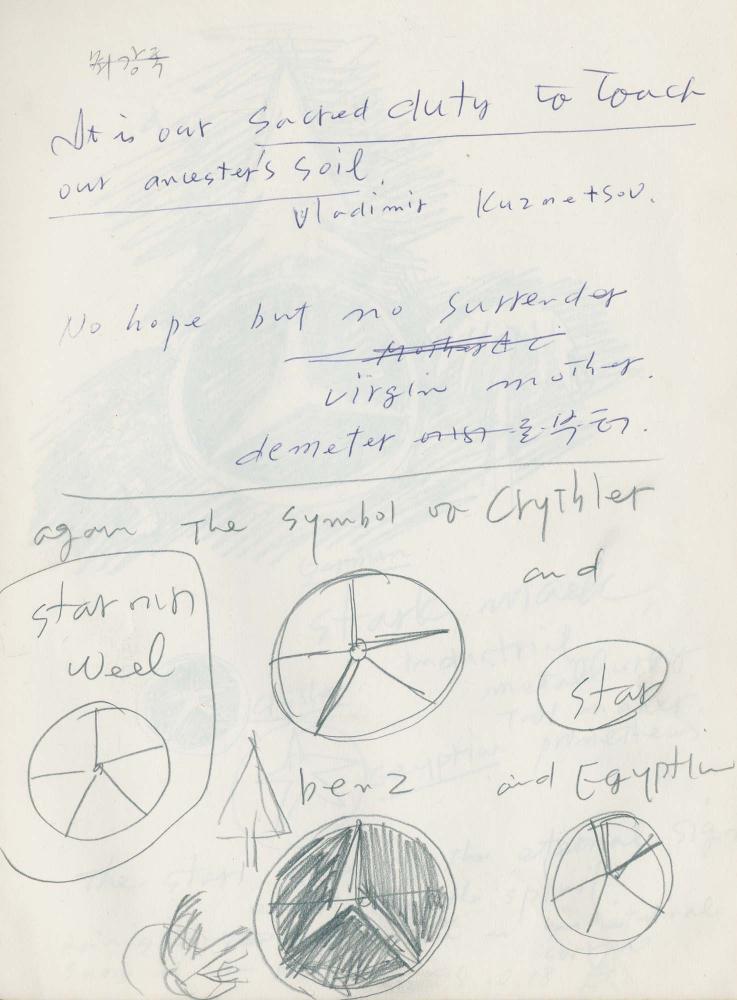 It is our Sacred duty to Touch
our ancester's soil.
Vladimir Kuznetsov.
No hope but no surrender
virgin mother.
demeter 로부터.
again The symbol
and
star
weel
star
benz
and Egyptian